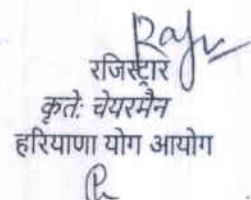 रजिस्ट्रार
कृते: चेयरमैन
हरियाणा योग आयोग